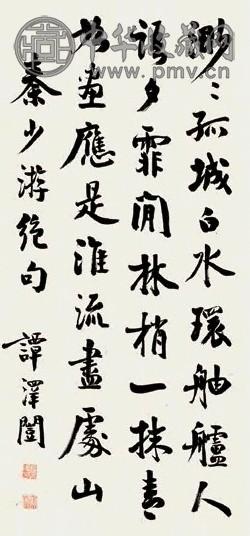 中华收藏网
www.pmv.cn
渺〻孤城白水環舳艫人
語夕霏間林梢一抹青
如畫應是淮流盡處山
秦少游絕句
譚澤闓